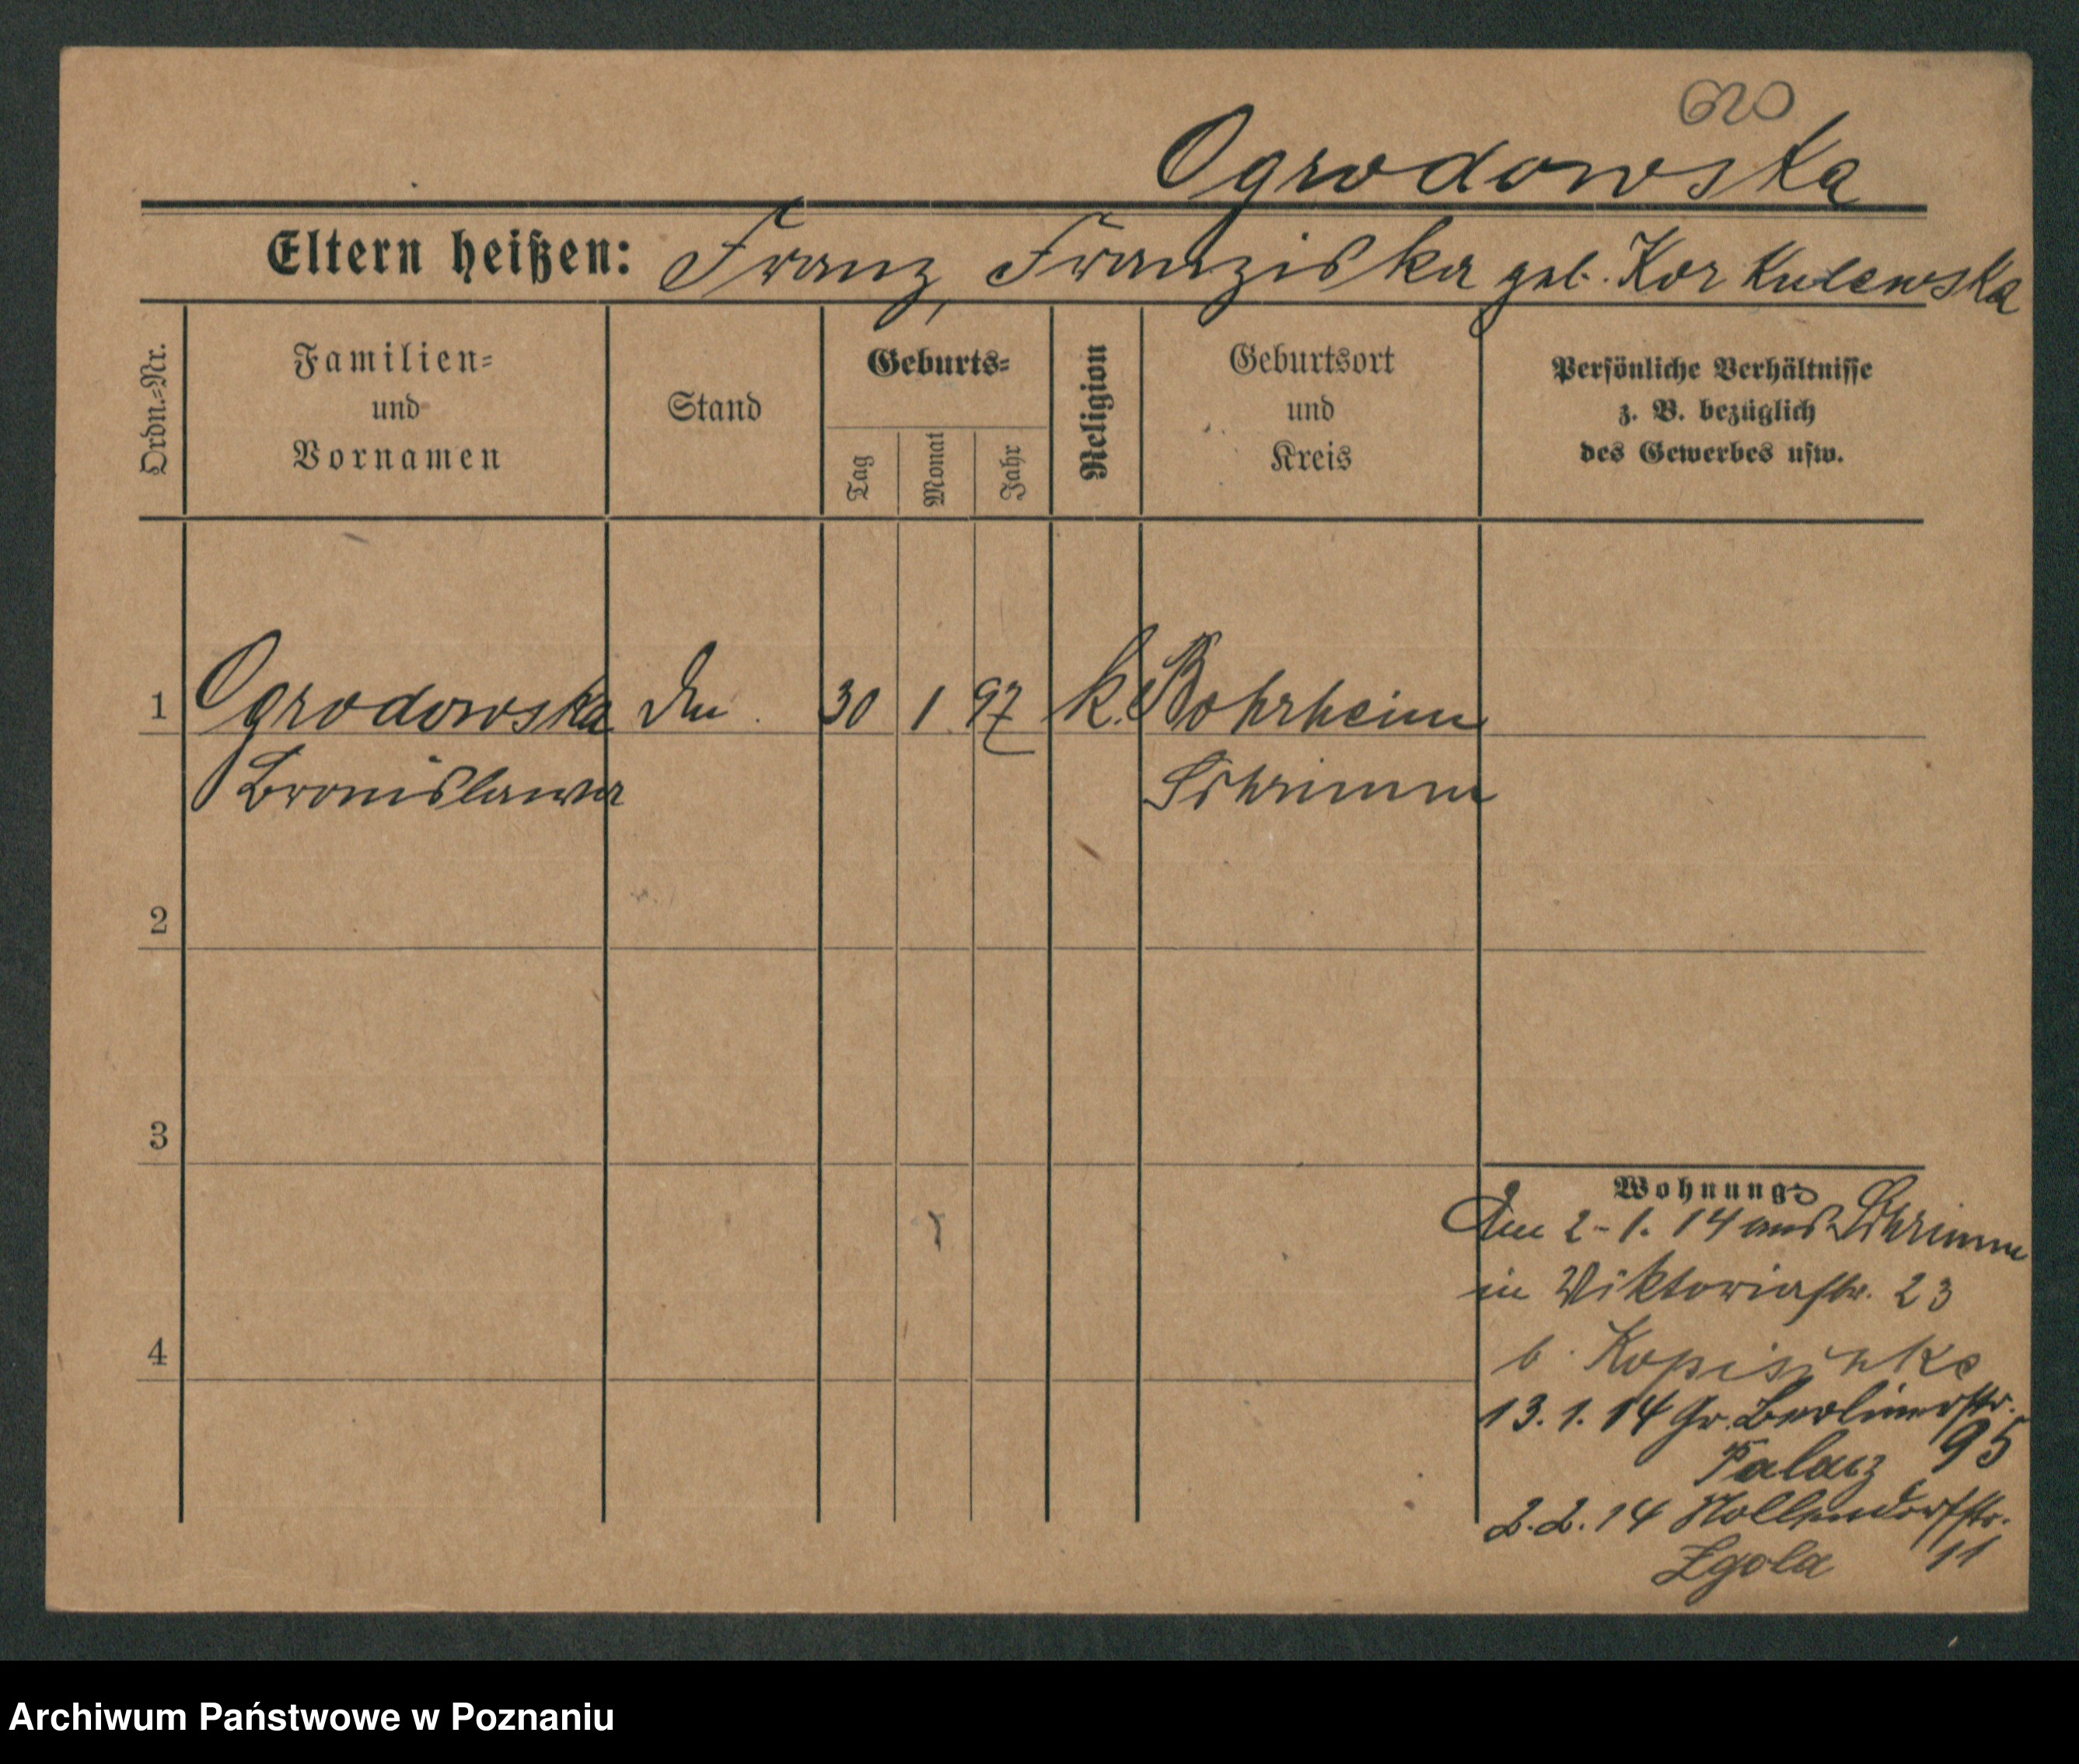 620
Ogrodowska
Eltern heißen: Franz, Franziska geb. Korkulewska
Ordn.=Nr.
Familien=
und
Vornamen
Stand
Geburts=
Tag
Monat
Jahr
Religion
Geburtsort
und
Kreis
Persönliche Verhältnisse
z. B. bezüglich
des Gewerbes usw.
1 Ogrodowska 30 1. 97 k. Bohrheim
Bronislawa Schrimm
2
3
4
Wohnung:
2-1. 14 aus Schrimm
in Viktoriastr. 23
b.
13. 1. 14 Gr. Berlinerstr.
Palacz 95
2. 2. 14 Hollendorfstr.
Zgola 11
Archiwum Państwowe w Poznaniu